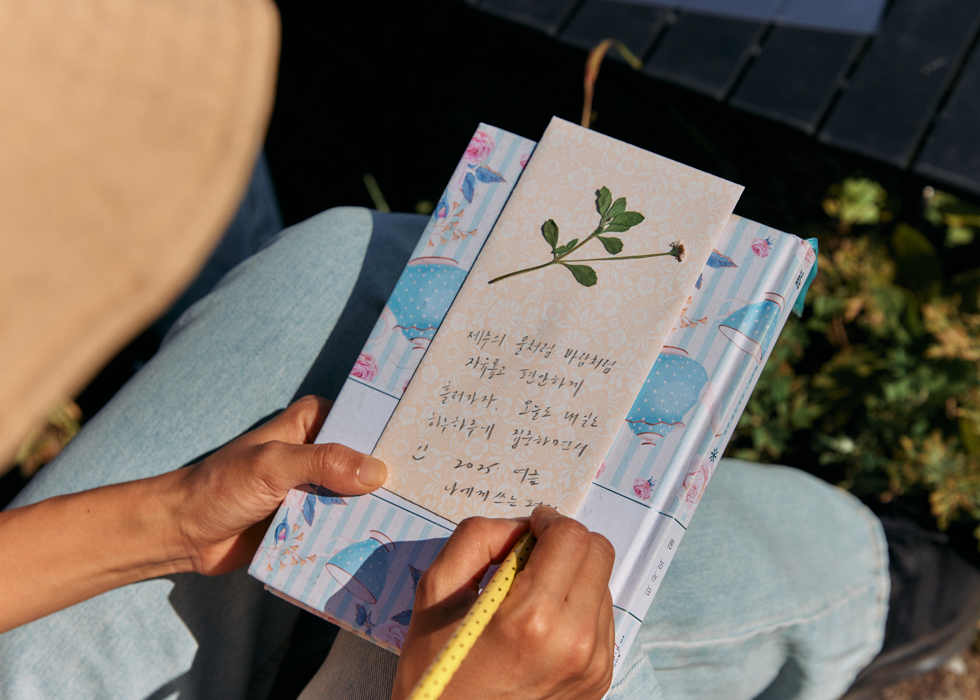 제주의 물처럼 바람처럼
자유롭고 편안하게
흘러가자. 오늘도 내일도
하루하루에 집중하면서
2025 여름
나에게 쓰는